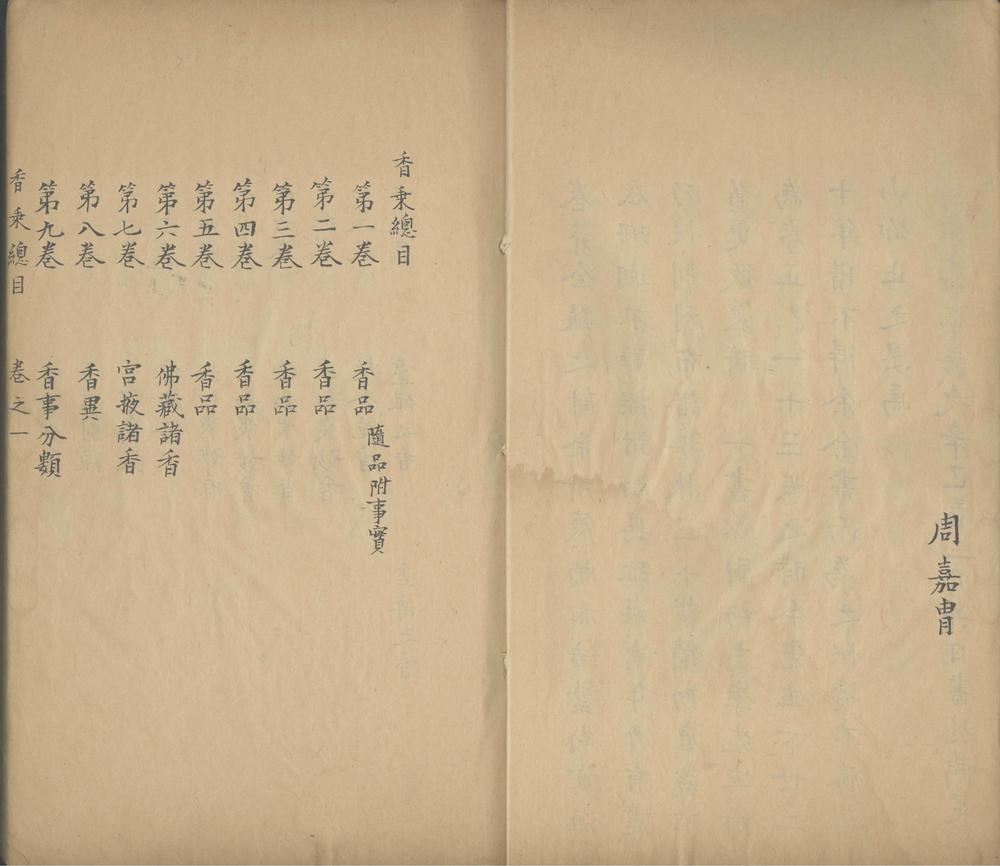 周嘉胄
香乘總目
第一卷 香品 隨品附事實
第二卷 香品
第三卷 香品
第四卷 香品
第五卷 香品
第六卷 佛藏諸香
第七卷 宮掖諸香
第八卷 香異
第九卷 香事分類
香乘總目 卷之一